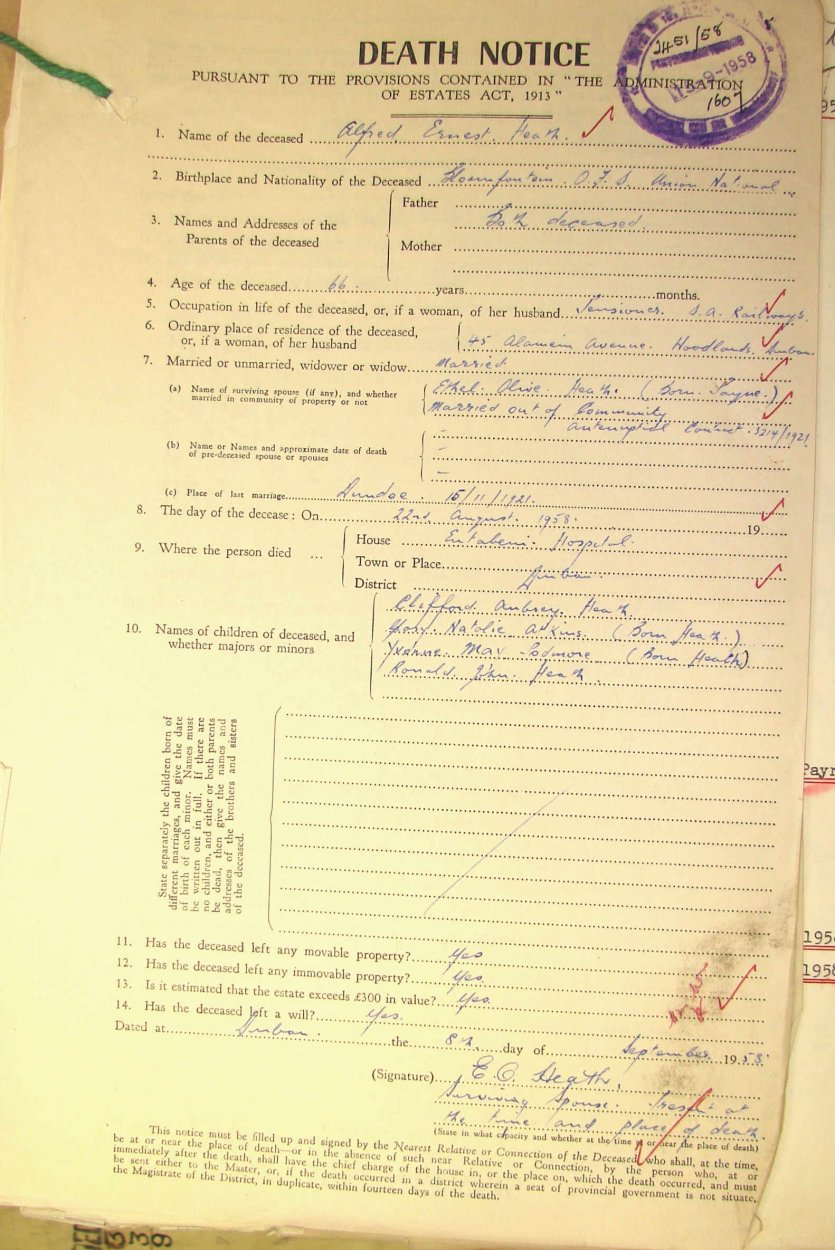 2451/58
-9-1958
1607
DEATH NOTICE
PURSUANT TO THE PROVISIONS CONTAINED IN "THE ADMINISTRATION
OF ESTATES ACT, 1913"
1. Name of the deceased Alfred Ernest Heath.
2. Birthplace and Nationality of the Deceased Bloemfontein O.F.S. Union National
3. Names and Addresses of the Parents of the deceased
Father
Both deceased.
Mother
4. Age of the deceased 66 years months.
5. Occupation in life of the deceased, or, if a woman, of her husband Pensioner. S.A. Railways.
6. Ordinary place of residence of the deceased,
or, if a woman, of her husband
45 Alamein Avenue. Woodlands. Durban.
7. Married or unmarried, widower or widow Married.
(a) Name of surviving spouse (if any), and whether
married in community of property or not
Ethel Olive Heath. (Born Payne.)
Married out of Community
antenuptial Contract 3214/1921
(b) Name or Names and approximate date of death
of pre-deceased spouse or spouses
–
–
–
(c) Place of last marriage Dundee. 15/11/1921.
8. The day of the decease: On 22nd August. 1958. 19
9. Where the person died ...
House Entabeni Hospital.
Town or Place
District Durban.
10. Names of children of deceased, and
whether majors or minors
Clifford Aubrey Heath.
Natalie Atkins. (Born Heath.)
Yvonne May (Born Heath)
Ronald John Heath.
State separately the children born of
different marriages, and give the date
of birth of each minor. Names must
be written out in full. If there are
no children, and either or both parents
be dead, then give the names and
addresses of the brothers and sisters
of the deceased.
11. Has the deceased left any movable property? Yes
12. Has the deceased left any immovable property? Yes.
13. Is it estimated that the estate exceeds £300 in value? Yes.
14. Has the deceased left a will? Yes.
Dated at Durban. the 8th day of September 1958.
(Signature) E. O. Heath,
Surviving spouse. Present at
the time and place of death.
(State in what capacity and whether at the time at or near the place of death)
This notice must be filled up and signed by the Nearest Relative or Connection of the Deceased, who shall, at the time,
be at or near the place of death—or in the absence of such near Relative or Connection, by the person who, at or
immediately after the death, shall have the chief charge of the house in, or the place on, which the death occurred, and must
be sent either to the Master, or, if the death occurred in a district wherein a seat of provincial government is not situate,
the Magistrate of the District, in duplicate, within fourteen days of the death.
1958